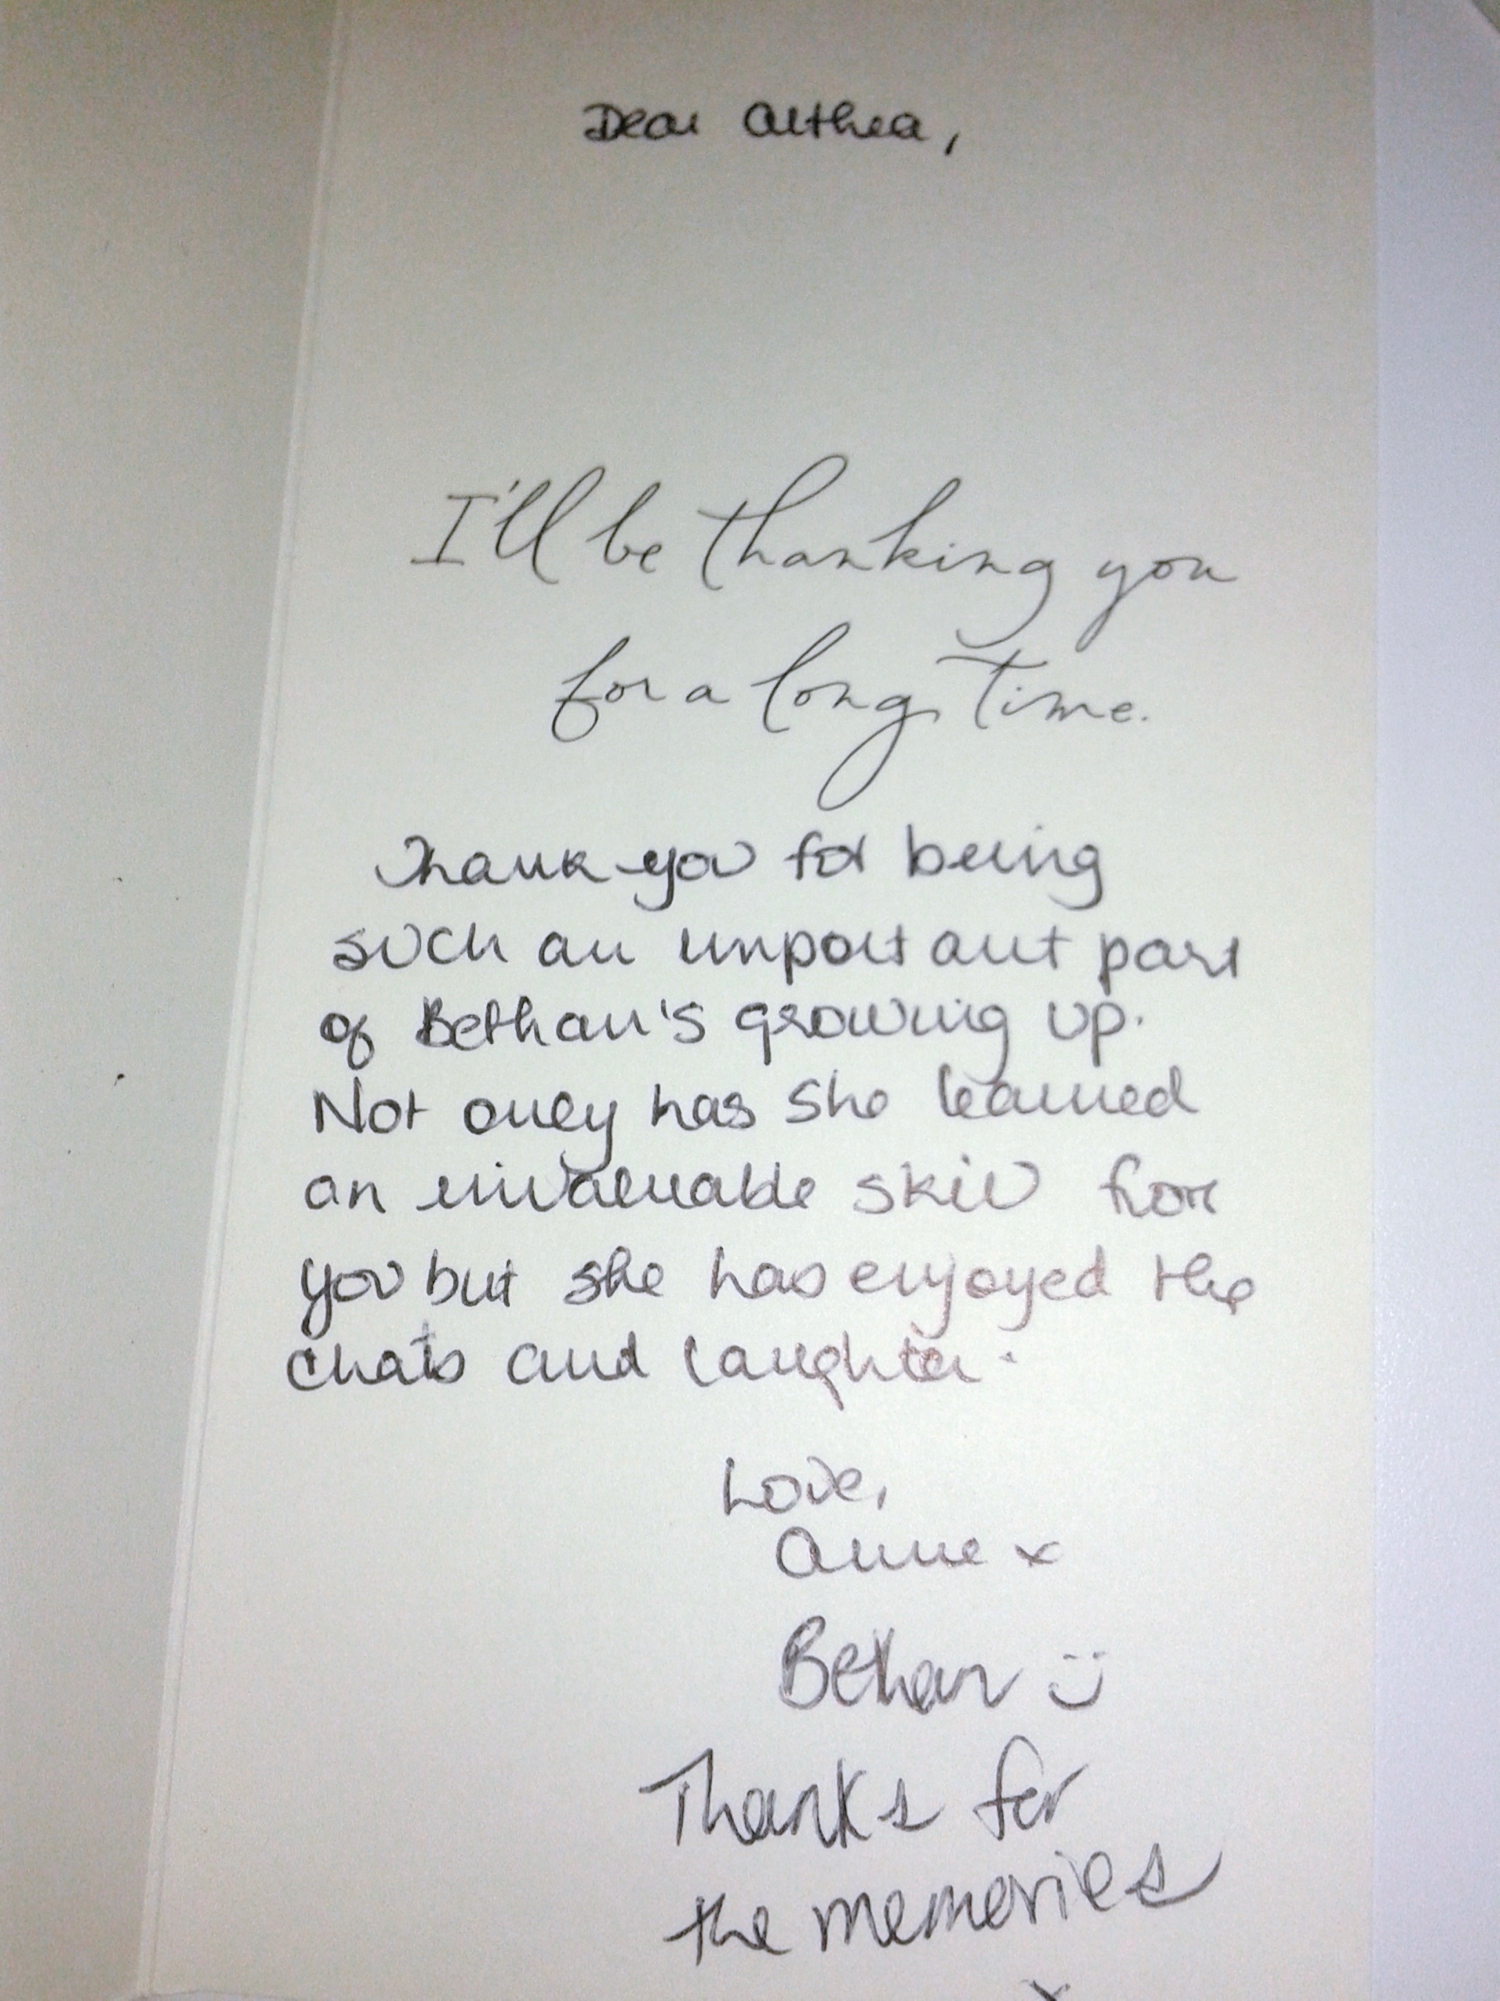 Dear Althea,
I'll be thanking you
for a long time.
Thank you for being
such an important part
of Bethan's growing up.
Not only has she learned
an invaluable skill from
you but she has enjoyed the
chats and laughter.
Love,
Anne x
Bethan :)
Thanks for
the memories
x